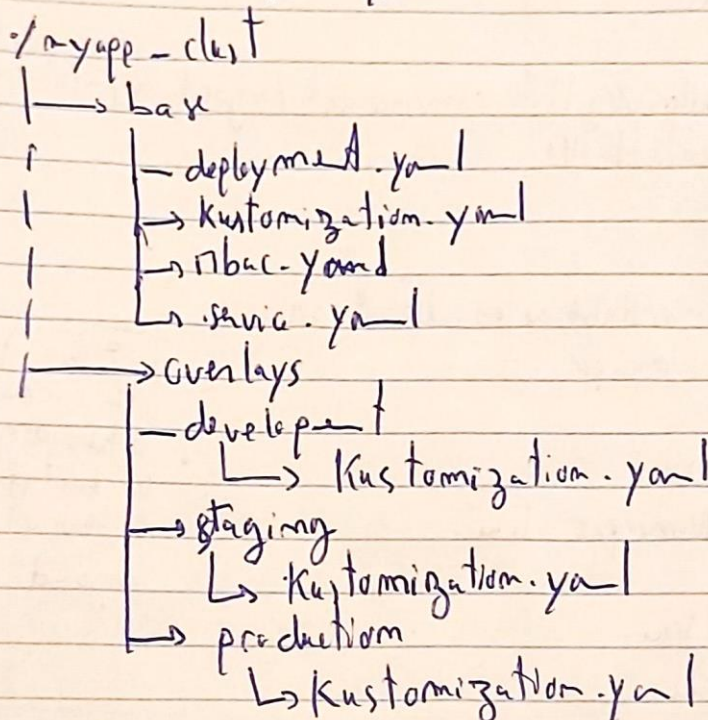 ./myapp_clust
base
deployment.yaml
kustomization.yaml
rbac.yaml
service.yaml
overlays
development
kustomization.yaml
staging
kustomization.yaml
production
kustomization.yaml